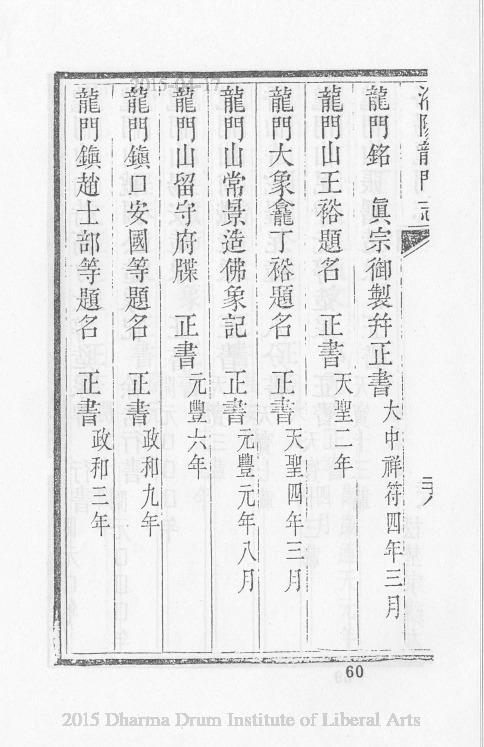 洛陽龍門志
龍門銘 眞宗御製幷正書 大中祥符四年三月
龍門山王裕題名 正書 天聖二年
龍門大象龕丁裕題名 正書 天聖四年三月
龍門山常景造佛象記 正書 元豐元年八月
龍門山留守府牒 正書 元豐六年
龍門鎭口安國等題名 正書 政和九年
龍門鎭趙士部等題名 正書 政和三年
60
2015 Dharma Drum Institute of Liberal Arts